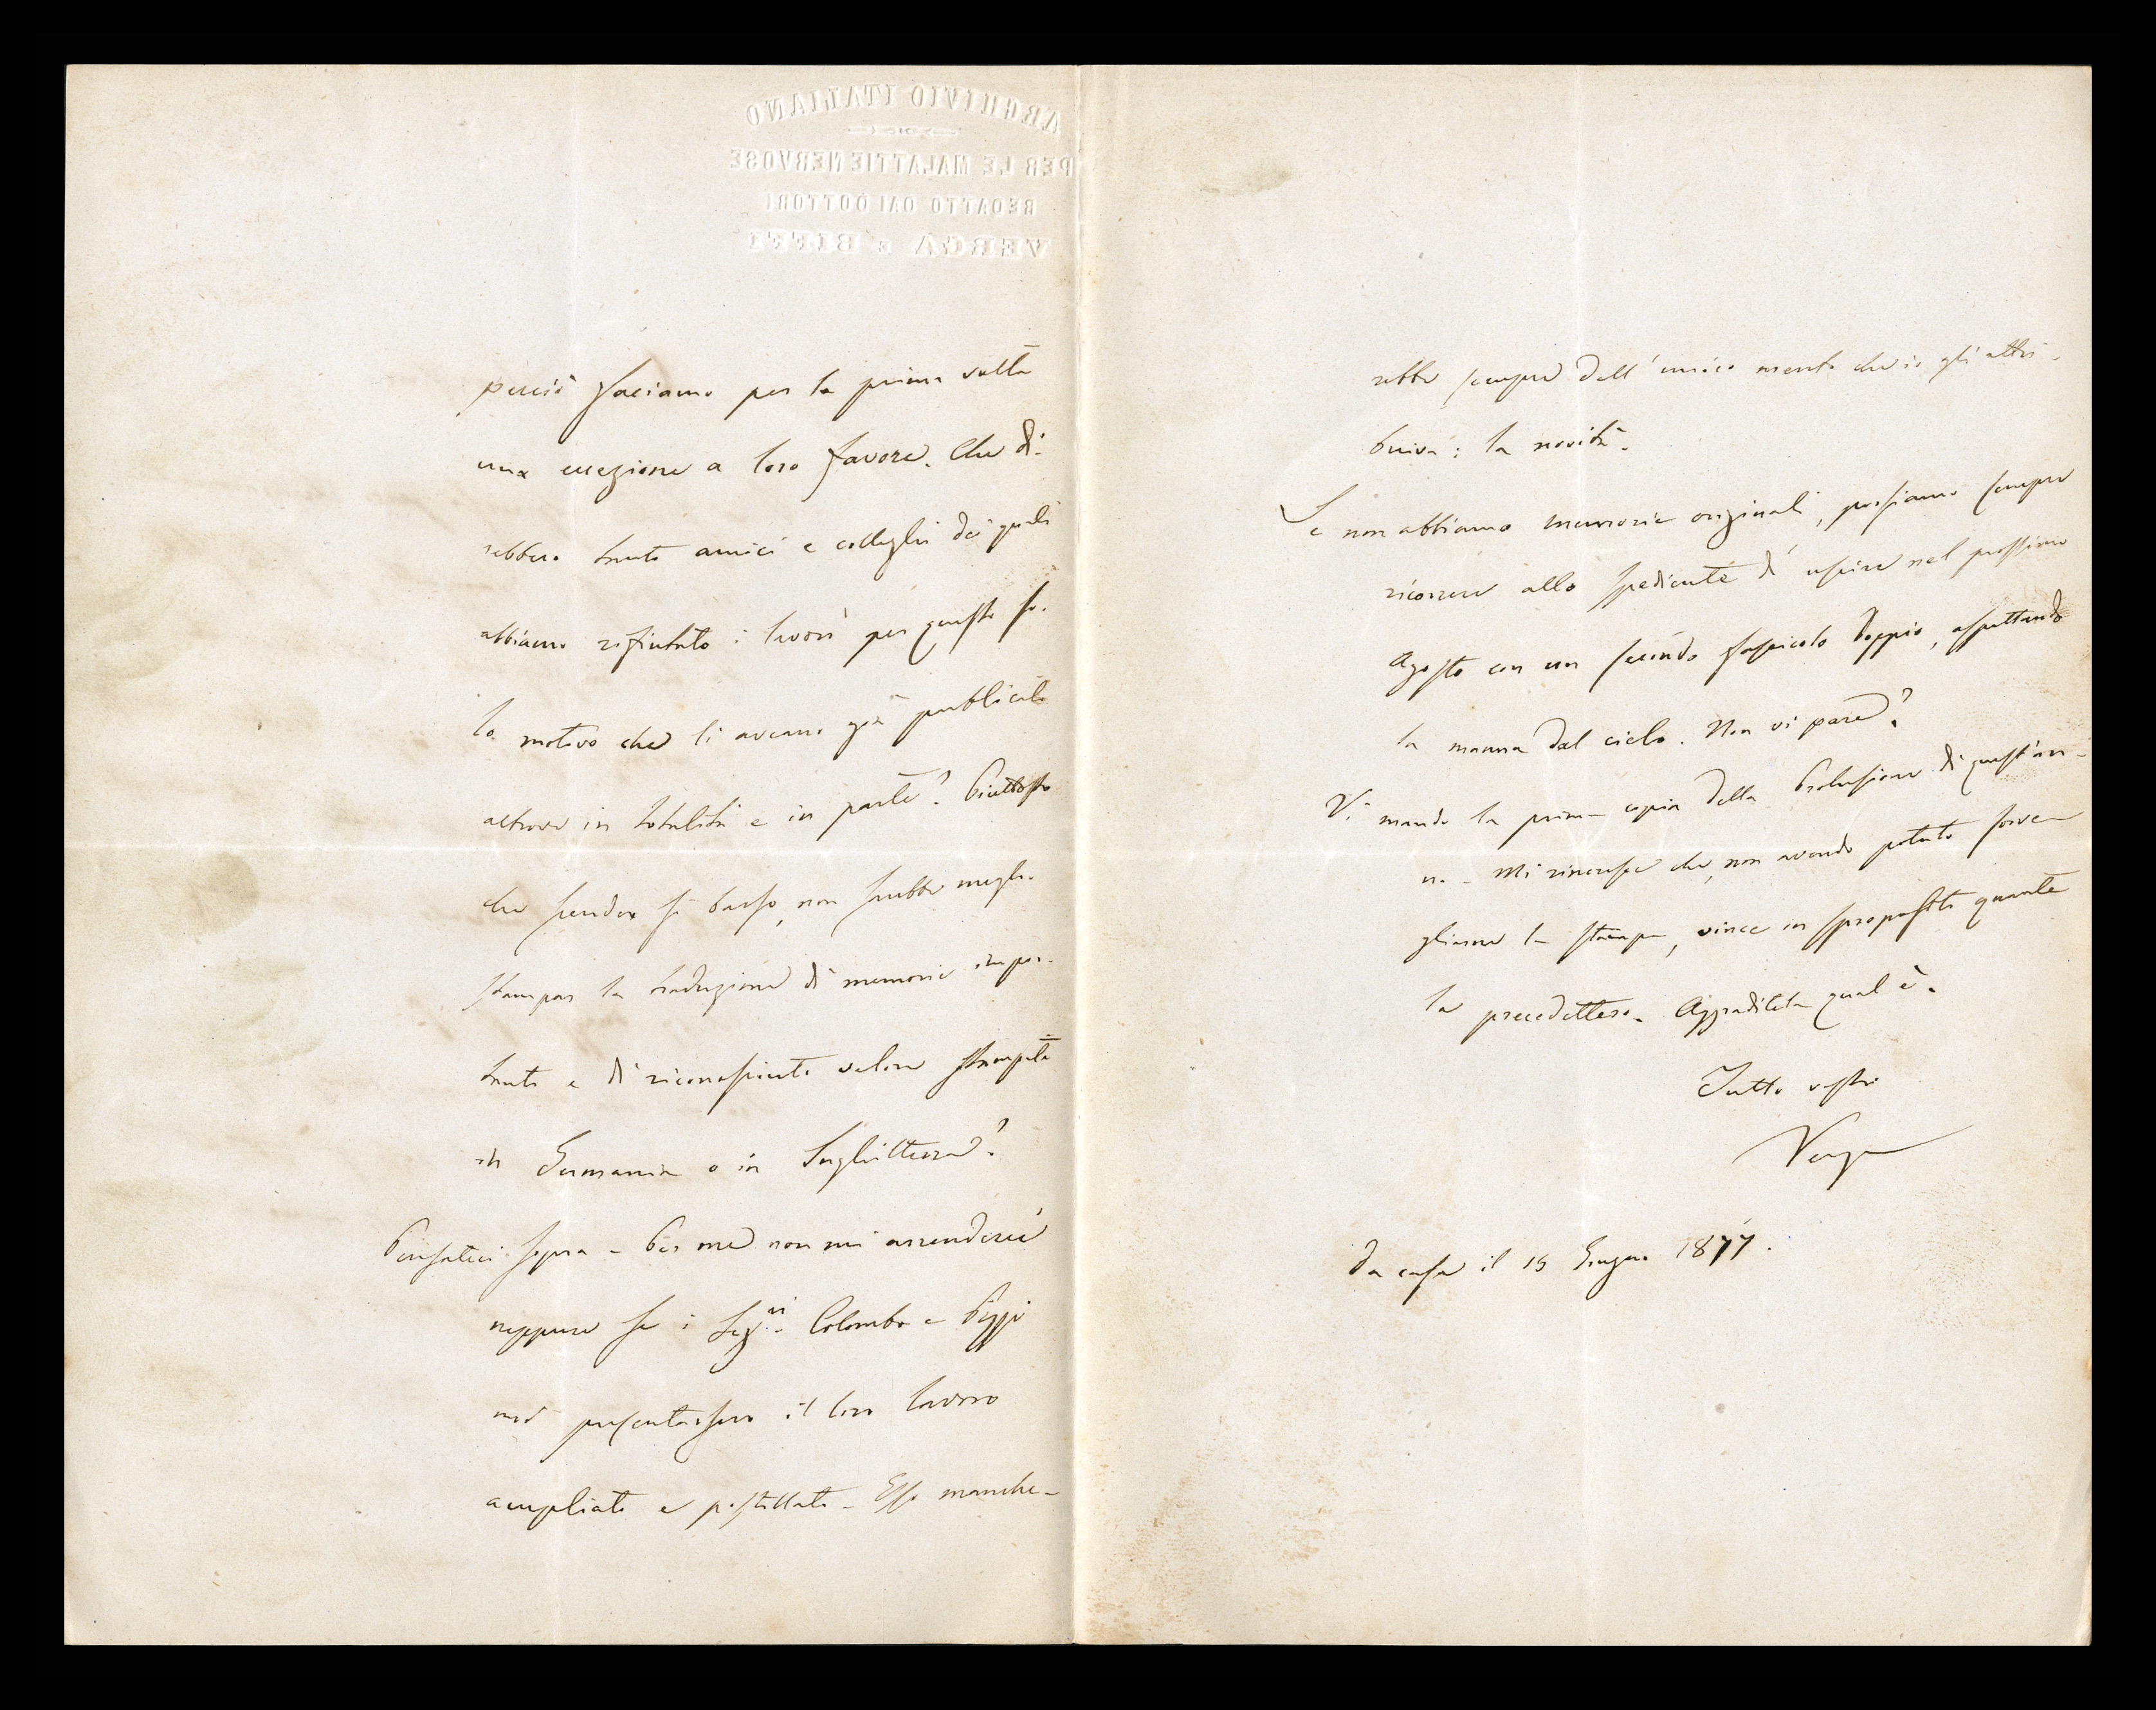 ARCHIVIO ITALIANO
PER LE MALATTIE NERVOSE
REDATTO DAI DOTTORI
VERGA E BIFFI
perciò facciamo per la prima volta
una eccezione a loro favore. Che di-
rebbero tanti amici e colleghi dei quali
abbiamo rifiutato i lavori per questo so-
lo motivo che li aveano già pubblicati
altrove in totalità e in parte? Piuttosto
che scender sì basso, non sarebbe meglio
stampar la traduzione di memorie impor-
tanti e di riconosciuto valore stampate
in Germania o in Inghilterra?
Pensateci sopra - Per me non mi arrenderei
neppure se i Sig.ri Colombo e Pizzi
mi presentassero il loro lavoro
ampliato e postillato - Esso manche-
rebbe sempre dell'unico merito che io gli attri-
buiva: la novità.
Se non abbiamo memorie originali, possiamo sempre
ricorrere allo spediente d'uscire nel prossimo
Agosto con un secondo fascicolo doppio, aspettando
la manna dal cielo. Non vi pare?
Vi mando la prima copia della Prolusione di quest'an-
no - Mi rincresce che, non avendo potuto sorve-
gliarne la stampa, vince in spropositi quante
la precedettero. Aggraditela qual è.
Tutto vostro
Verga
Da casa il 15 Giugno 1877.